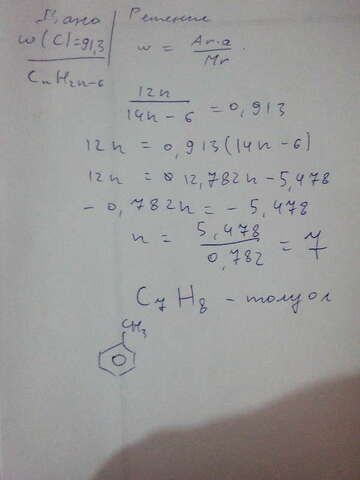 Дано
Решение
w(C)=91,3
CnH2n-6
w = Ar·a / Mr
12n / 14n-6 = 0,913
12n = 0,913(14n-6)
12n = 12,782n-5,478
-0,782n = -5,478
n = 5,478 / 0,782 = 7
C7H8 - толуол
CH3